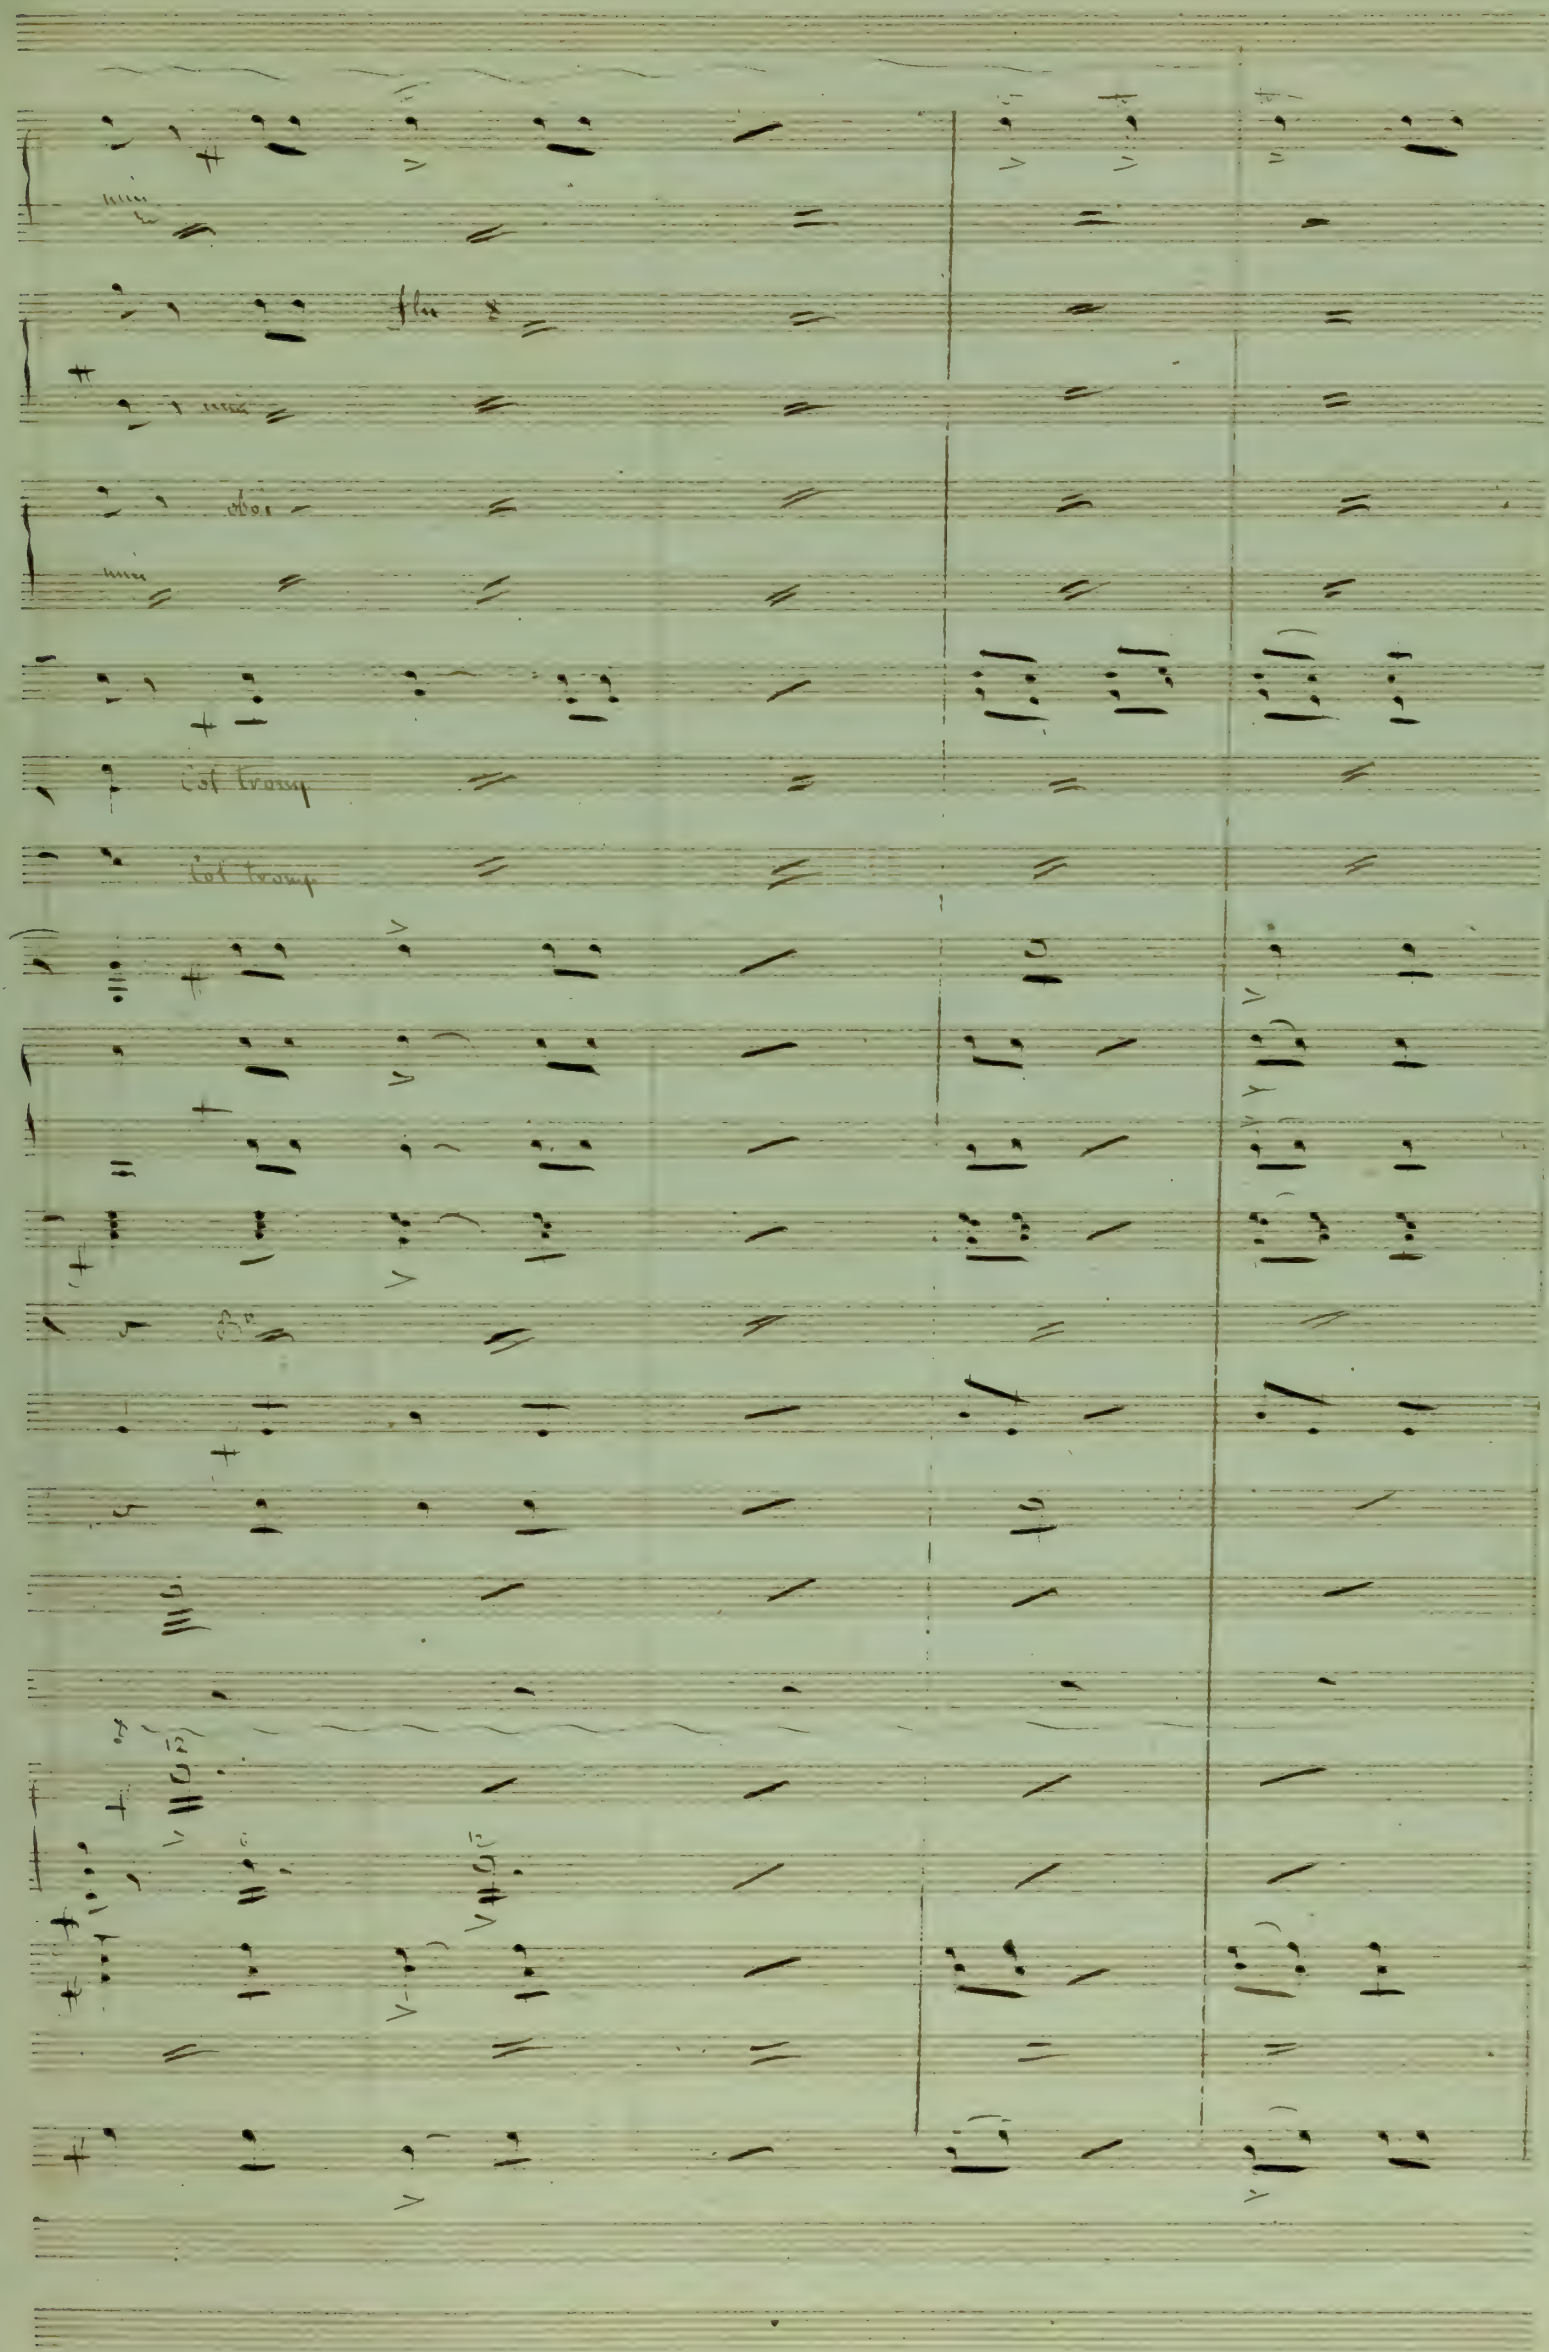 unis
flu 8
unis
oboi
unis
Col tromp
Col tromp